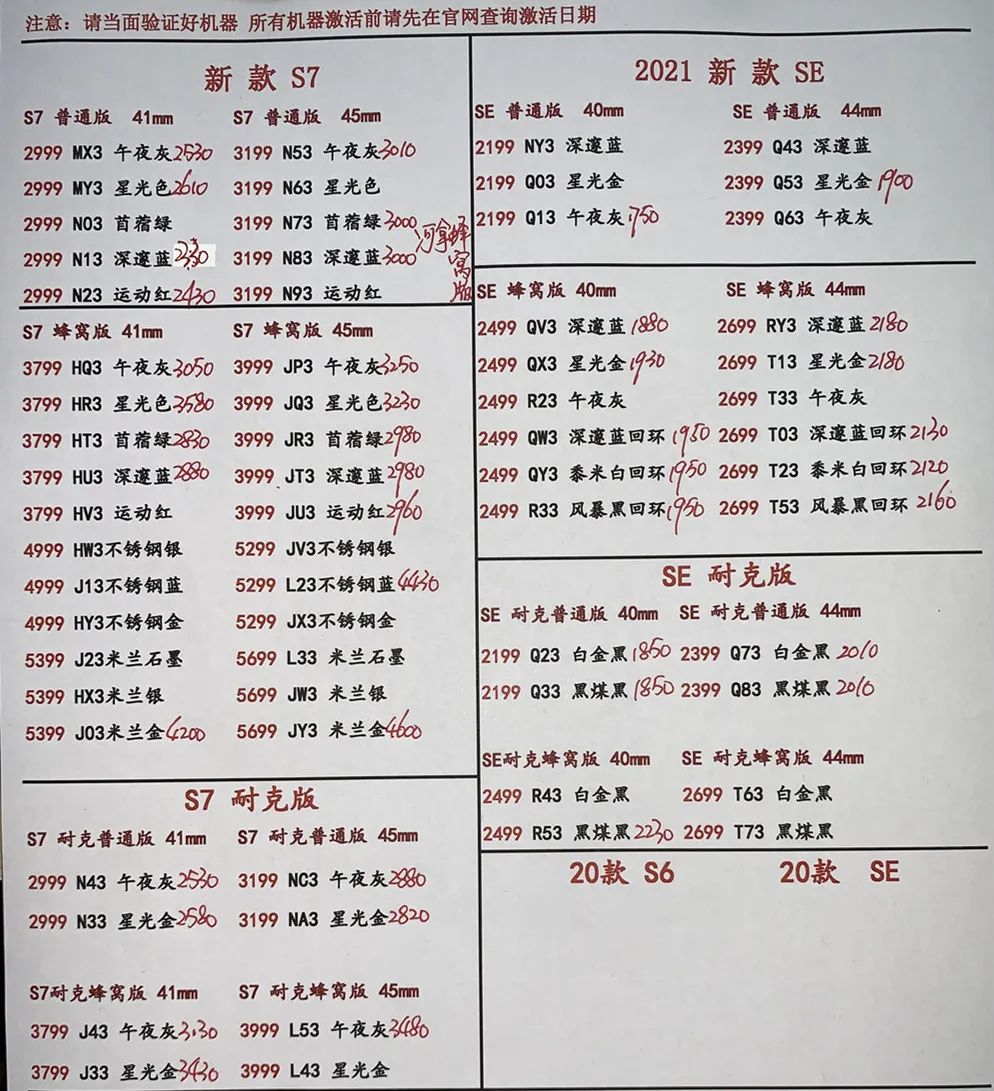 注意：请当面验证好机器 所有机器激活前请先在官网查询激活日期
新 款 S7
S7 普通版 41mm
2999 MX3 午夜灰2530
2999 MY3 星光色2610
2999 N03 首蓿绿
2999 N13 深邃蓝2330
2999 N23 运动红2430
S7 普通版 45mm
3199 N53 午夜灰3010
3199 N63 星光色
3199 N73 首蓿绿3000
3199 N83 深邃蓝3000
3199 N93 运动红
蜂窝版
S7 蜂窝版 41mm
3799 HQ3 午夜灰3050
3799 HR3 星光色3580
3799 HT3 首蓿绿2830
3799 HU3 深邃蓝2880
3799 HV3 运动红
4999 HW3不锈钢银
4999 J13不锈钢蓝
4999 HY3不锈钢金
5399 J23米兰石墨
5399 HX3米兰银
5399 J03米兰金4200
S7 蜂窝版 45mm
3999 JP3 午夜灰3250
3999 JQ3 星光色3230
3999 JR3 首蓿绿2980
3999 JT3 深邃蓝2980
3999 JU3 运动红2960
5299 JV3不锈钢银
5299 L23不锈钢蓝4430
5299 JX3不锈钢金
5699 L33 米兰石墨
5699 JW3 米兰银
5699 JY3 米兰金4600
S7 耐克版
S7 耐克普通版 41mm
2999 N43 午夜灰2530
2999 N33 星光金2580
S7 耐克普通版 45mm
3199 NC3 午夜灰2880
3199 NA3 星光金2820
S7耐克蜂窝版 41mm
3799 J43 午夜灰3130
3799 J33 星光金3430
S7 耐克蜂窝版 45mm
3999 L53 午夜灰3480
3999 L43 星光金
2021 新 款 SE
SE 普通版 40mm
2199 NY3 深邃蓝
2199 Q03 星光金
2199 Q13 午夜灰1750
SE 普通版 44mm
2399 Q43 深邃蓝
2399 Q53 星光金1900
2399 Q63 午夜灰
SE 蜂窝版 40mm
2499 QV3 深邃蓝1880
2499 QX3 星光金1930
2499 R23 午夜灰
2499 QW3 深邃蓝回环1950
2499 QY3 黍米白回环1950
2499 R33 风暴黑回环1950
SE 蜂窝版 44mm
2699 RY3 深邃蓝2180
2699 T13 星光金2180
2699 T33 午夜灰
2699 T03 深邃蓝回环2130
2699 T23 黍米白回环2120
2699 T53 风暴黑回环2160
SE 耐克版
SE 耐克普通版 40mm
2199 Q23 白金黑1850
2199 Q33 黑煤黑1850
SE 耐克普通版 44mm
2399 Q73 白金黑2010
2399 Q83 黑煤黑2010
SE耐克蜂窝版 40mm
2499 R43 白金黑
2499 R53 黑煤黑2230
SE 耐克蜂窝版 44mm
2699 T63 白金黑
2699 T73 黑煤黑
20款 S6
20款 SE